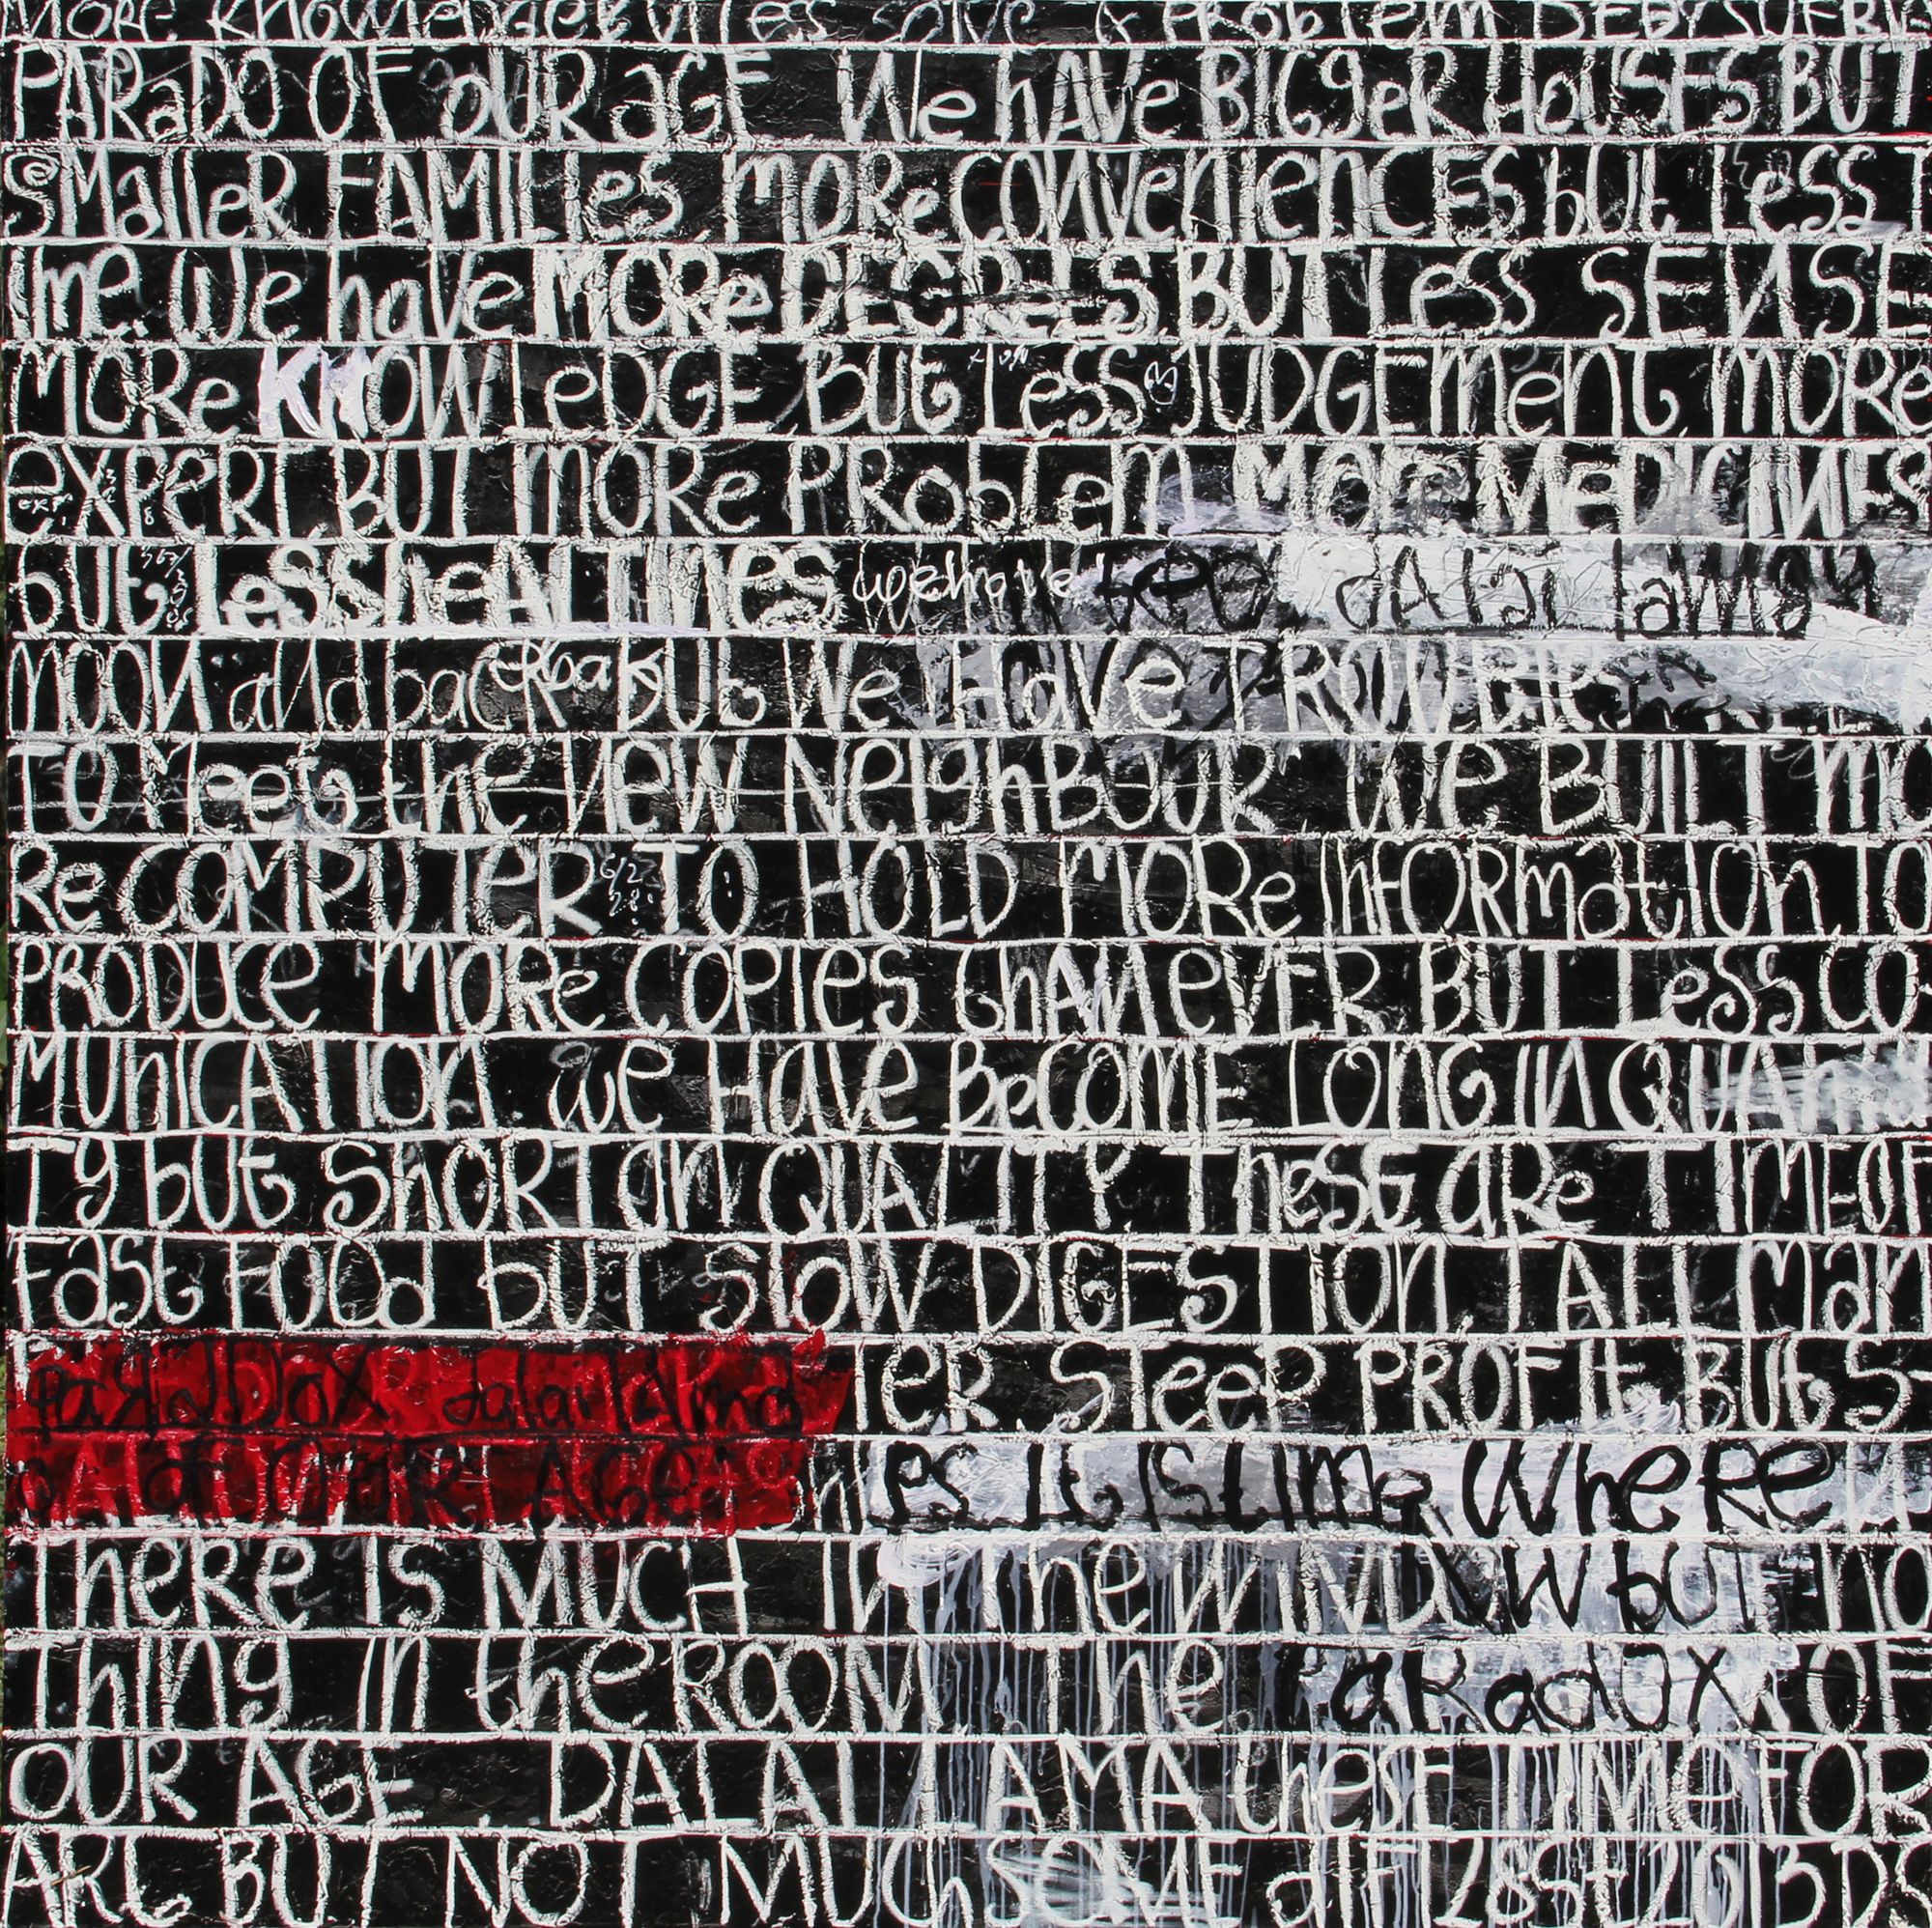 MORE KNOWLEDGE SOLVE A PROBLEM
PARaDO OF OUR aGE We hAVe BIGgeR HOUSES BUT
SMalleR FAMILIes, MORe CONVenienCES bUt Less T
Ime. We have MORe DEGReeS BUT Less SENSE
MORe KNOWLeDGE BUt Less JUDGEMenT, MORe
eXPERt BUT MORe PRobLem MORe MeDICINES
bUt LesS heALTINes we have dAlai lama
MOON aNd back BUt We HaVe TROUBLe
TO Meet the NEW NeighBOUR We BUILT MO
Re COMPUTeR TO HOLD MORe InFORmatiOn TO
PRODUCe MORe COPIes thAN eVER BUT Less CO
MUniCATIOn. we HAVe BeCOME LONG IN QUANTI
Ty bUt ShORT On QUALITY TheSE aRe TIMEOF
FaSt FOOd bUT SlOW DIGESTIOn, TALL Man
PaRaDOX dalai lAma TER STeeP PROFIt, BUt S
AGE It IS time WheRe
TheRe IS MUCH IN The WINDOW but nO
Thing in the ROOM The PaRadOX OF
OUR AGE, DALAI LAMA theSE TIMe FOR
ARt BUT NOT MUCh SOME dIF 28St 2013 DS